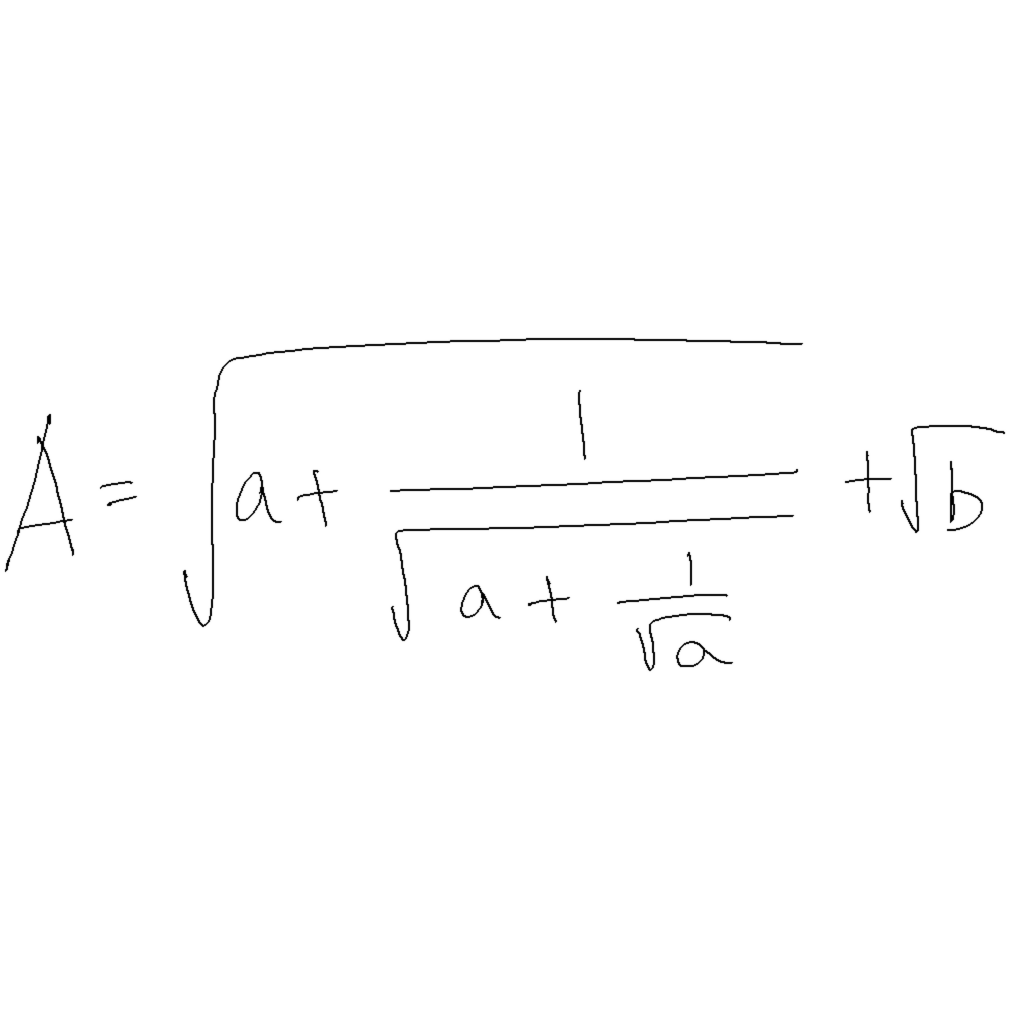 $A = \sqrt{a + \frac{1}{\sqrt{a + \frac{1}{\sqrt{a}}}}} + \sqrt{b}$